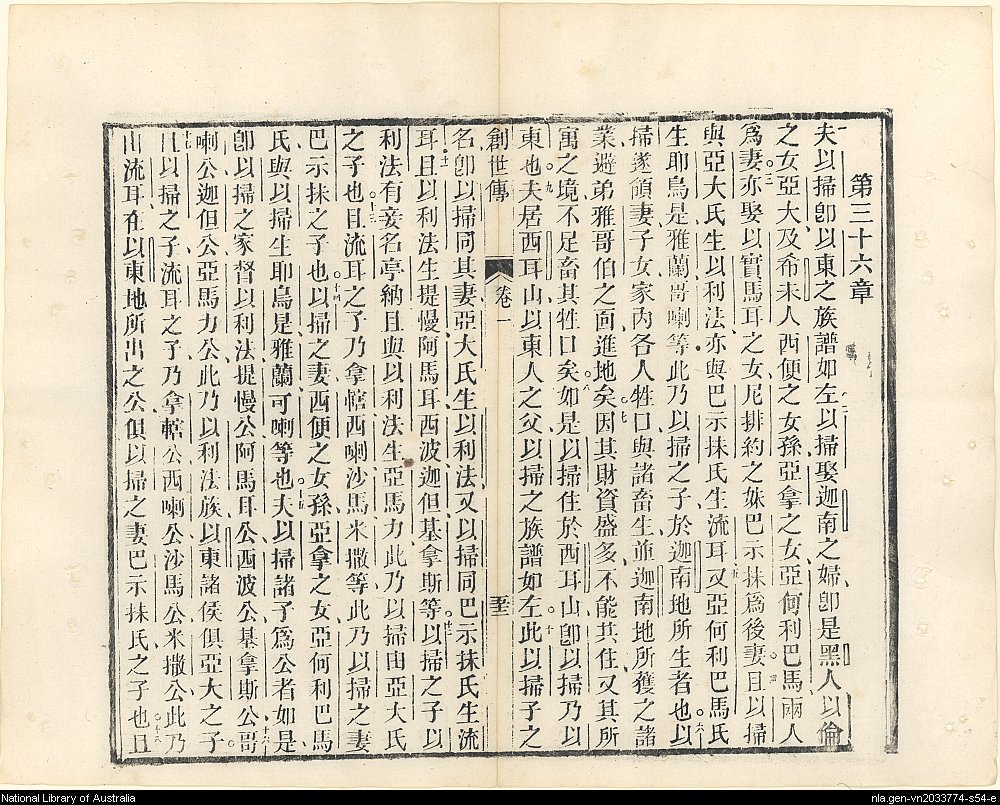 第三十六章
夫以掃卽以東之族譜如左以掃娶迦南之婦卽是黑人以倫
之女亞大及希未人西便之女孫亞拿之女亞何利巴馬兩人
爲妻亦娶以實馬耳之女尼排約之妹巴示抹爲後妻且以掃
與亞大氏生以利法亦與巴示抹氏生流耳又亞何利巴馬氏
生耶烏是雅蘭哥喇等此乃以掃之子於迦南地所生者也以
掃遂領妻子女家內各人牲口與諸畜生並迦南地所獲之諸
業避弟雅哥伯之面進地矣因其財資盛多不能共住又其所
寓之境不足畜其牲口矣如是以掃住於西耳山卽以掃乃以
東也夫居西耳山以東人之父以掃之族譜如左此以掃子之
創世傳
卷一
至三
名卽以掃同其妻亞大氏生以利法又以掃同巴示抹氏生流
耳且以利法生提慢阿馬耳西波迦但基拿斯等以掃之子以
利法有妾名亭納且與以利法生亞馬力此乃以掃由亞大氏
之子也且流耳之子乃拿轄西喇沙馬米撒等此乃以掃之妻
巴示抹之子也以掃之妻西便之女孫亞拿之女亞何利巴馬
氏與以掃生耶烏是雅蘭可喇等也夫以掃諸子爲公者如是
卽以掃之家督以利法提慢公阿馬耳公西波公基拿斯公哥
喇公迦但公亞馬力公此乃以利法族以東諸侯俱亞大之子
且以掃之子流耳之子乃拿轄公西喇公沙馬公米撒公此乃
由流耳在以東地所出之公俱以掃之妻巴示抹氏之子也且
nla.gen-vn2033774-s54-e
National Library of Australia